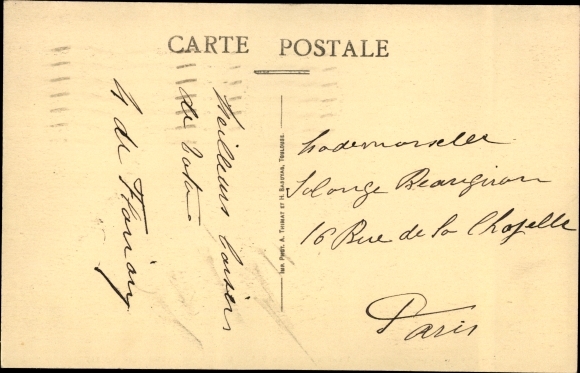 CARTE POSTALE
Meilleurs baisers
de
de
IMP. PHOT. A. THIRIAT ET H. BASUYAU, TOULOUSE.
Mademoiselle
Solange Beaugiron
16 Rue de la Chapelle
Paris